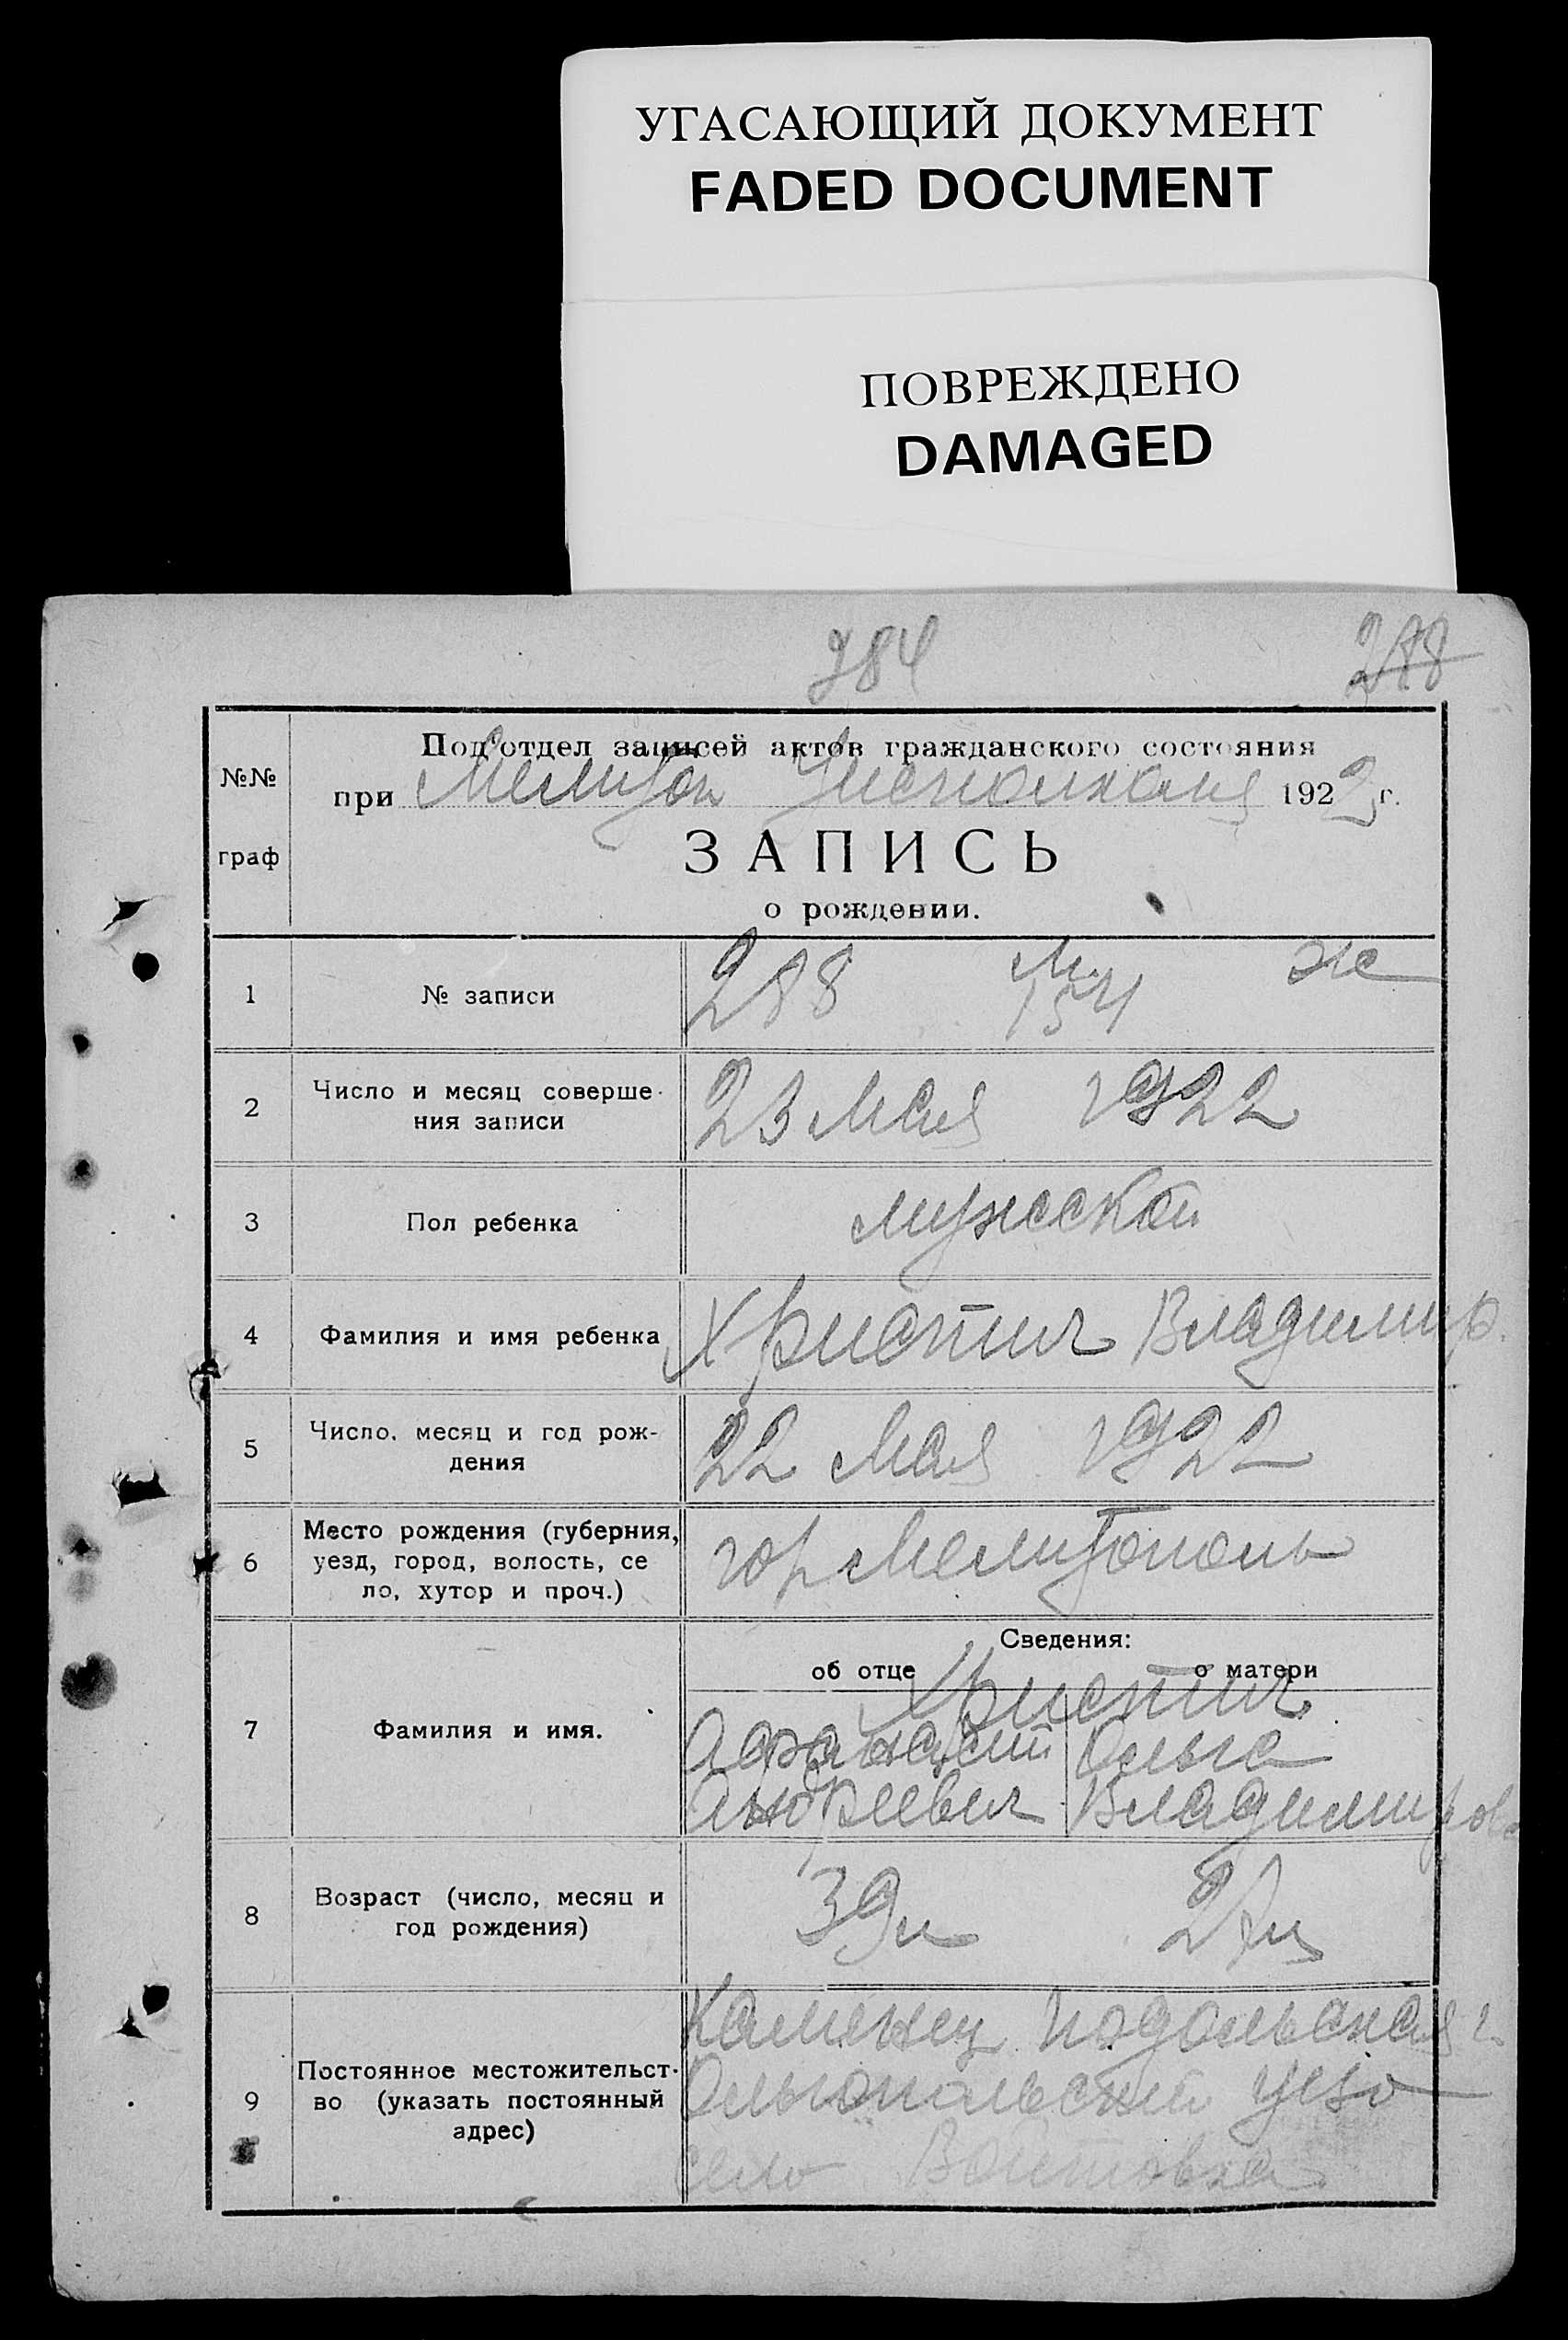 УГАСАЮЩИЙ ДОКУМЕНТ
FADED DOCUMENT
ПОВРЕЖДЕНО
DAMAGED
384 288
Под'отдел записей актов гражданского состояния
№№ граф
при Мелитоп 1922 г.
ЗАПИСЬ
о рождении.
1 № записи 288 М. 154 ж
2 Число и месяц соверше-
ния записи 23 Мая 1922
3 Пол ребенка мужской
4 Фамилия и имя ребенка Христич Владимир.
5 Число, месяц и год рож-
дения 22 Мая 1922
6 Место рождения (губерния,
уезд, город, волость, се
ло, хутор и проч.) гор Мелитополь
Сведения:
об отце о матери
Христич
7 Фамилия и имя. Афанасий Ольга
Андреевич Владимиров
8 Возраст (число, месяц и
год рождения) 39 л 27 л
9 Постоянное местожительст-
во (указать постоянный
адрес) Каменец Подольская г
Ольгопольский уезд
село Войтовка